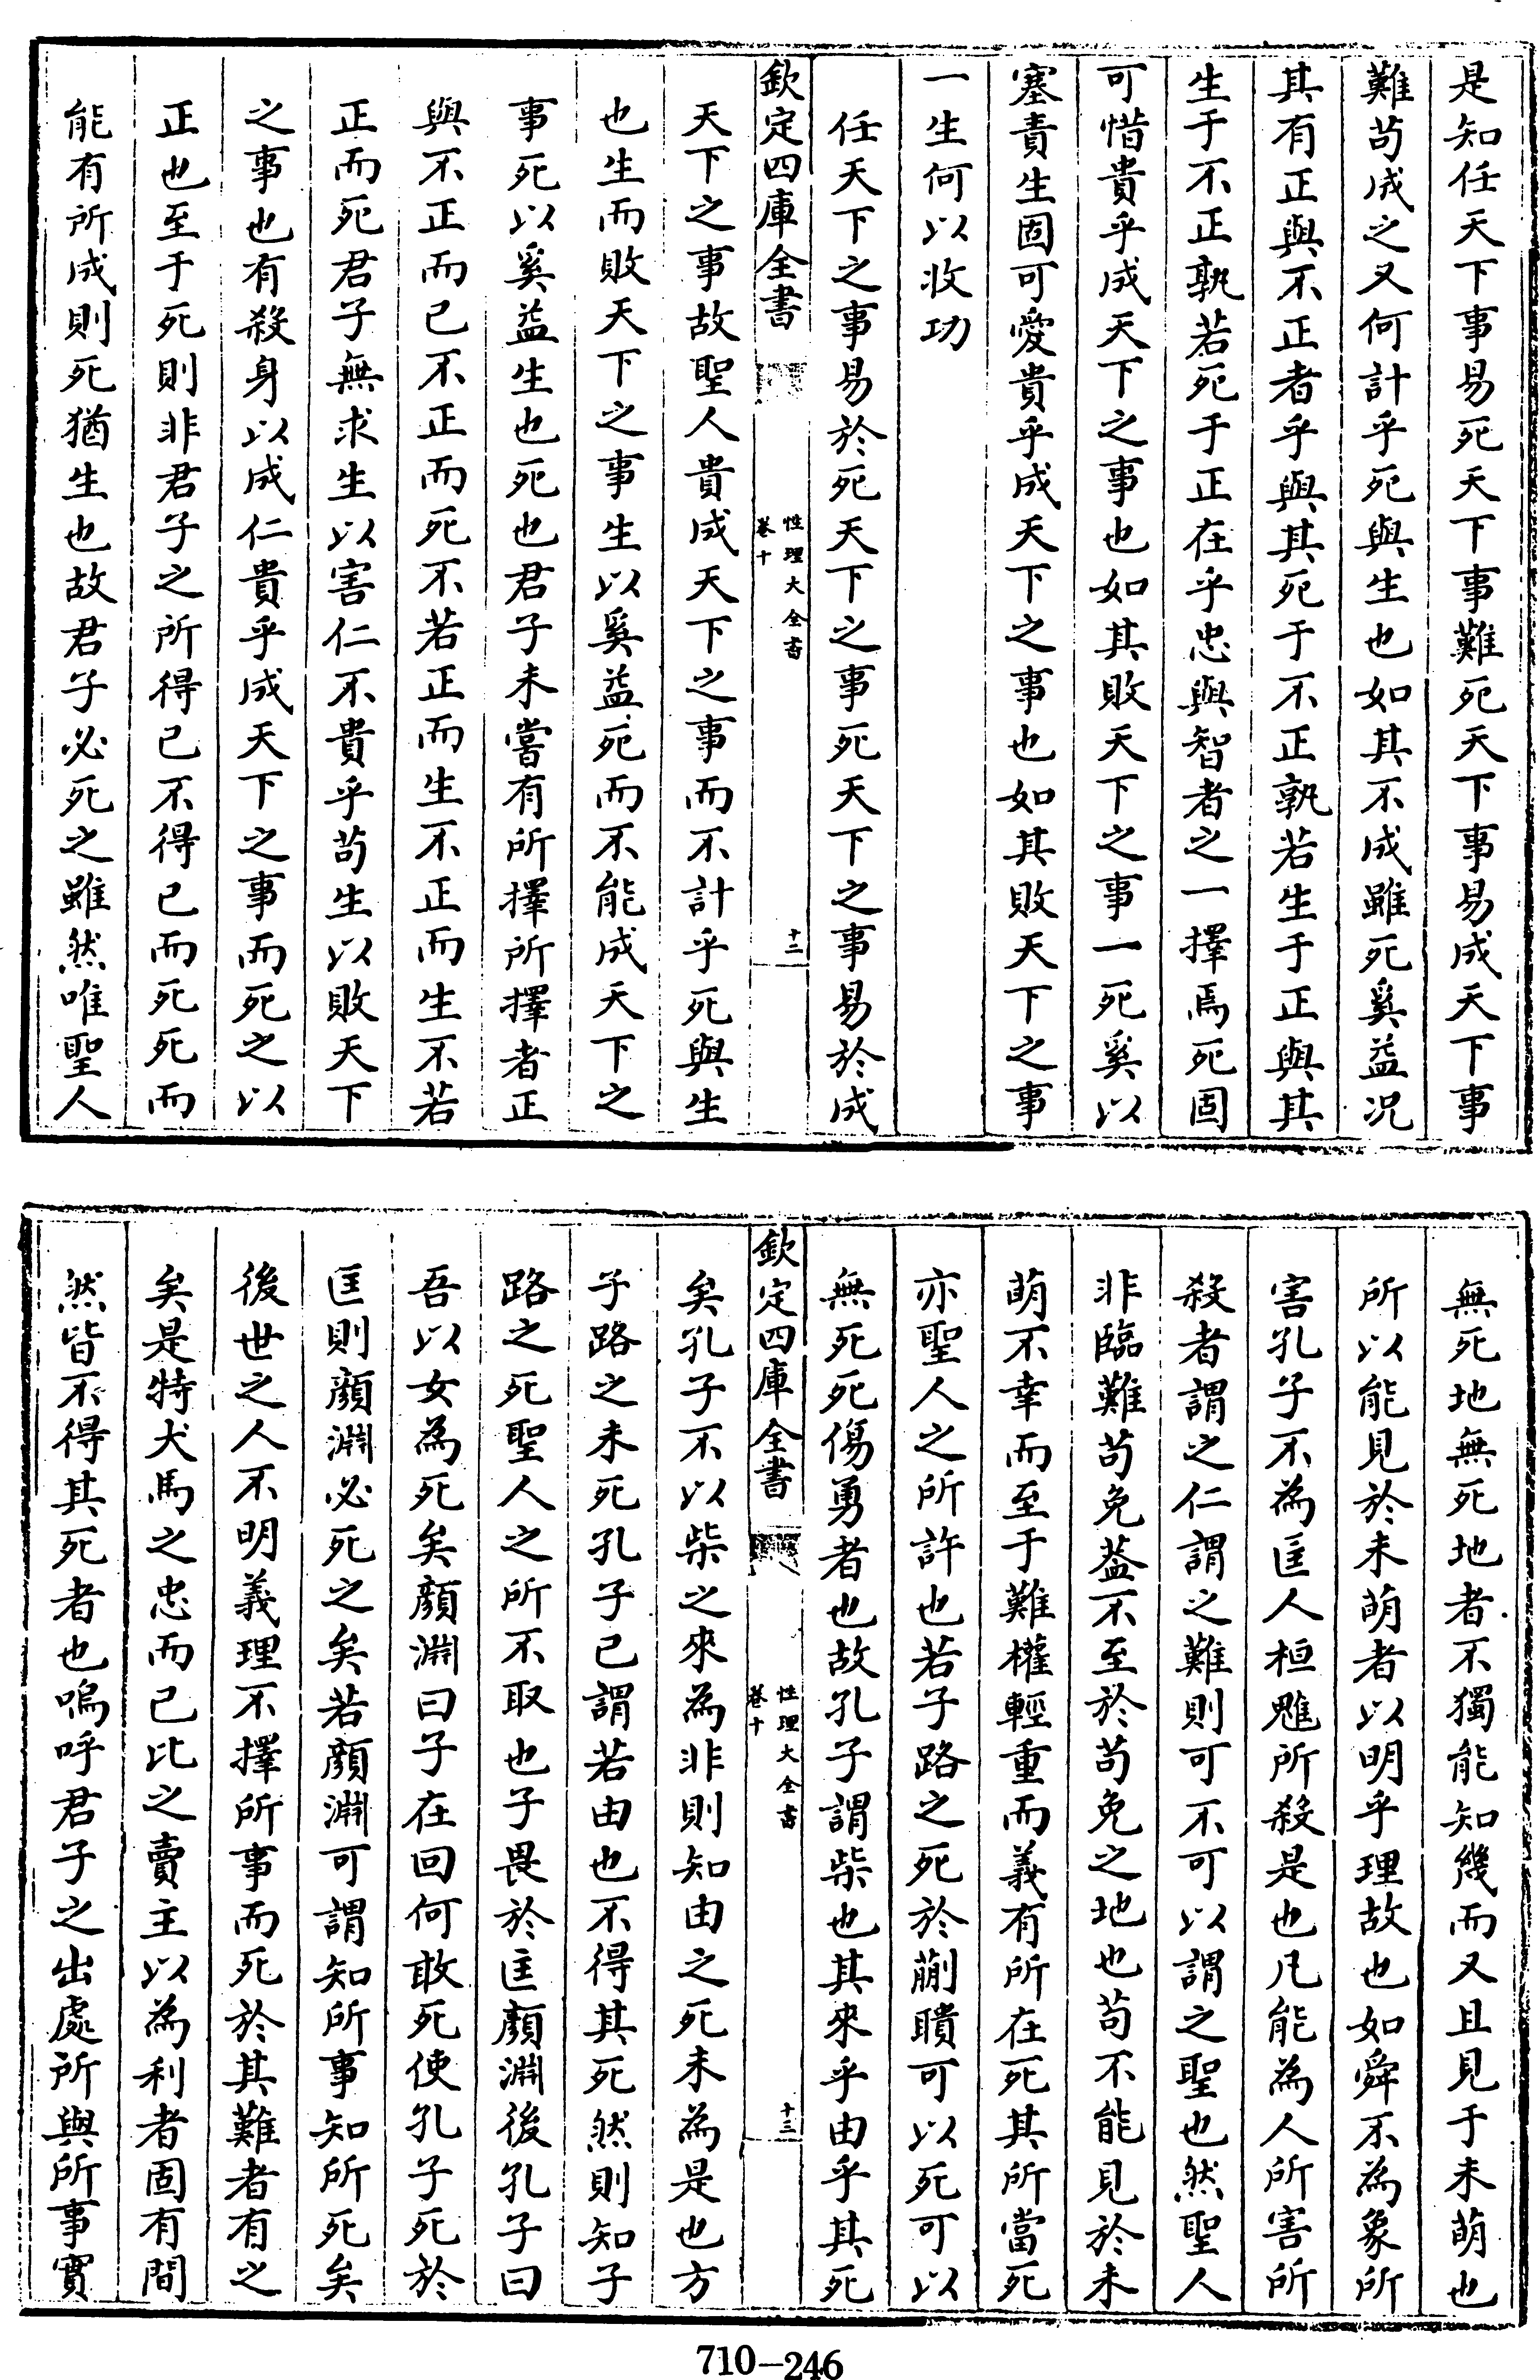 是知任天下事易死天下事難死天下事易成天下事
難苟成之又何計乎死與生也如其不成雖死奚益况
其有正與不正者乎與其死于不正孰若生于正與其
生于不正孰若死于正在乎忠與智者之一擇焉死固
可惜貴乎成天下之事也如其敗天下之事一死奚以
塞責生固可愛貴乎成天下之事也如其敗天下之事
一生何以收功
任天下之事易於死天下之事死天下之事易於成
欽定四庫全書
性理大全書
卷十
十二
天下之事故聖人貴成天下之事而不計乎死與生
也生而敗天下之事生以奚益死而不能成天下之
事死以奚益生也死也君子未嘗有所擇所擇者正
與不正而已不正而死不若正而生不正而生不若
正而死君子無求生以害仁不貴乎苟生以敗天下
之事也有殺身以成仁貴乎成天下之事而死之以
正也至于死則非君子之所得已不得已而死死而
能有所成則死猶生也故君子必死之雖然唯聖人
無死地無死地者不獨能知幾而又且見于未萌也
所以能見於未萌者以明乎理故也如舜不為象所
害孔子不為匡人桓魋所殺是也凡能為人所害所
殺者謂之仁謂之難則可不可以謂之聖也然聖人
非臨難苟免葢不至於苟免之地也苟不能見於未
萌不幸而至于難權輕重而義有所在死其所當死
亦聖人之所許也若子路之死於蒯聵可以死可以
無死死傷勇者也故孔子謂柴也其來乎由乎其死
欽定四庫全書
性理大全書
卷十
十三
矣孔子不以柴之來為非則知由之死未為是也方
子路之未死孔子已謂若由也不得其死然則知子
路之死聖人之所不取也子畏於匡顔淵後孔子曰
吾以女為死矣顔淵曰子在回何敢死使孔子死於
匡則顔淵必死之矣若顔淵可謂知所事知所死矣
後世之人不明義理不擇所事而死於其難者有之
矣是特犬馬之忠而已比之賣主以為利者固有間
然皆不得其死者也嗚呼君子之出處所與所事實
710-246